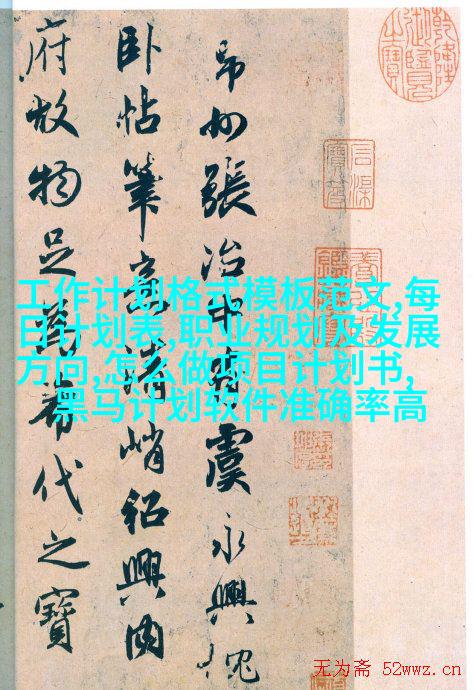 乾隆御覽之寶
州張冶中虞永興枕
卧帖筆意清峭紹興内
府故物足為希代之寶
工作计划格式模板范文,每
日计划表,职业规划及发展
方向,怎么做项目计划书,
黑马计划软件准确率高
无为斋 52wwz.cn